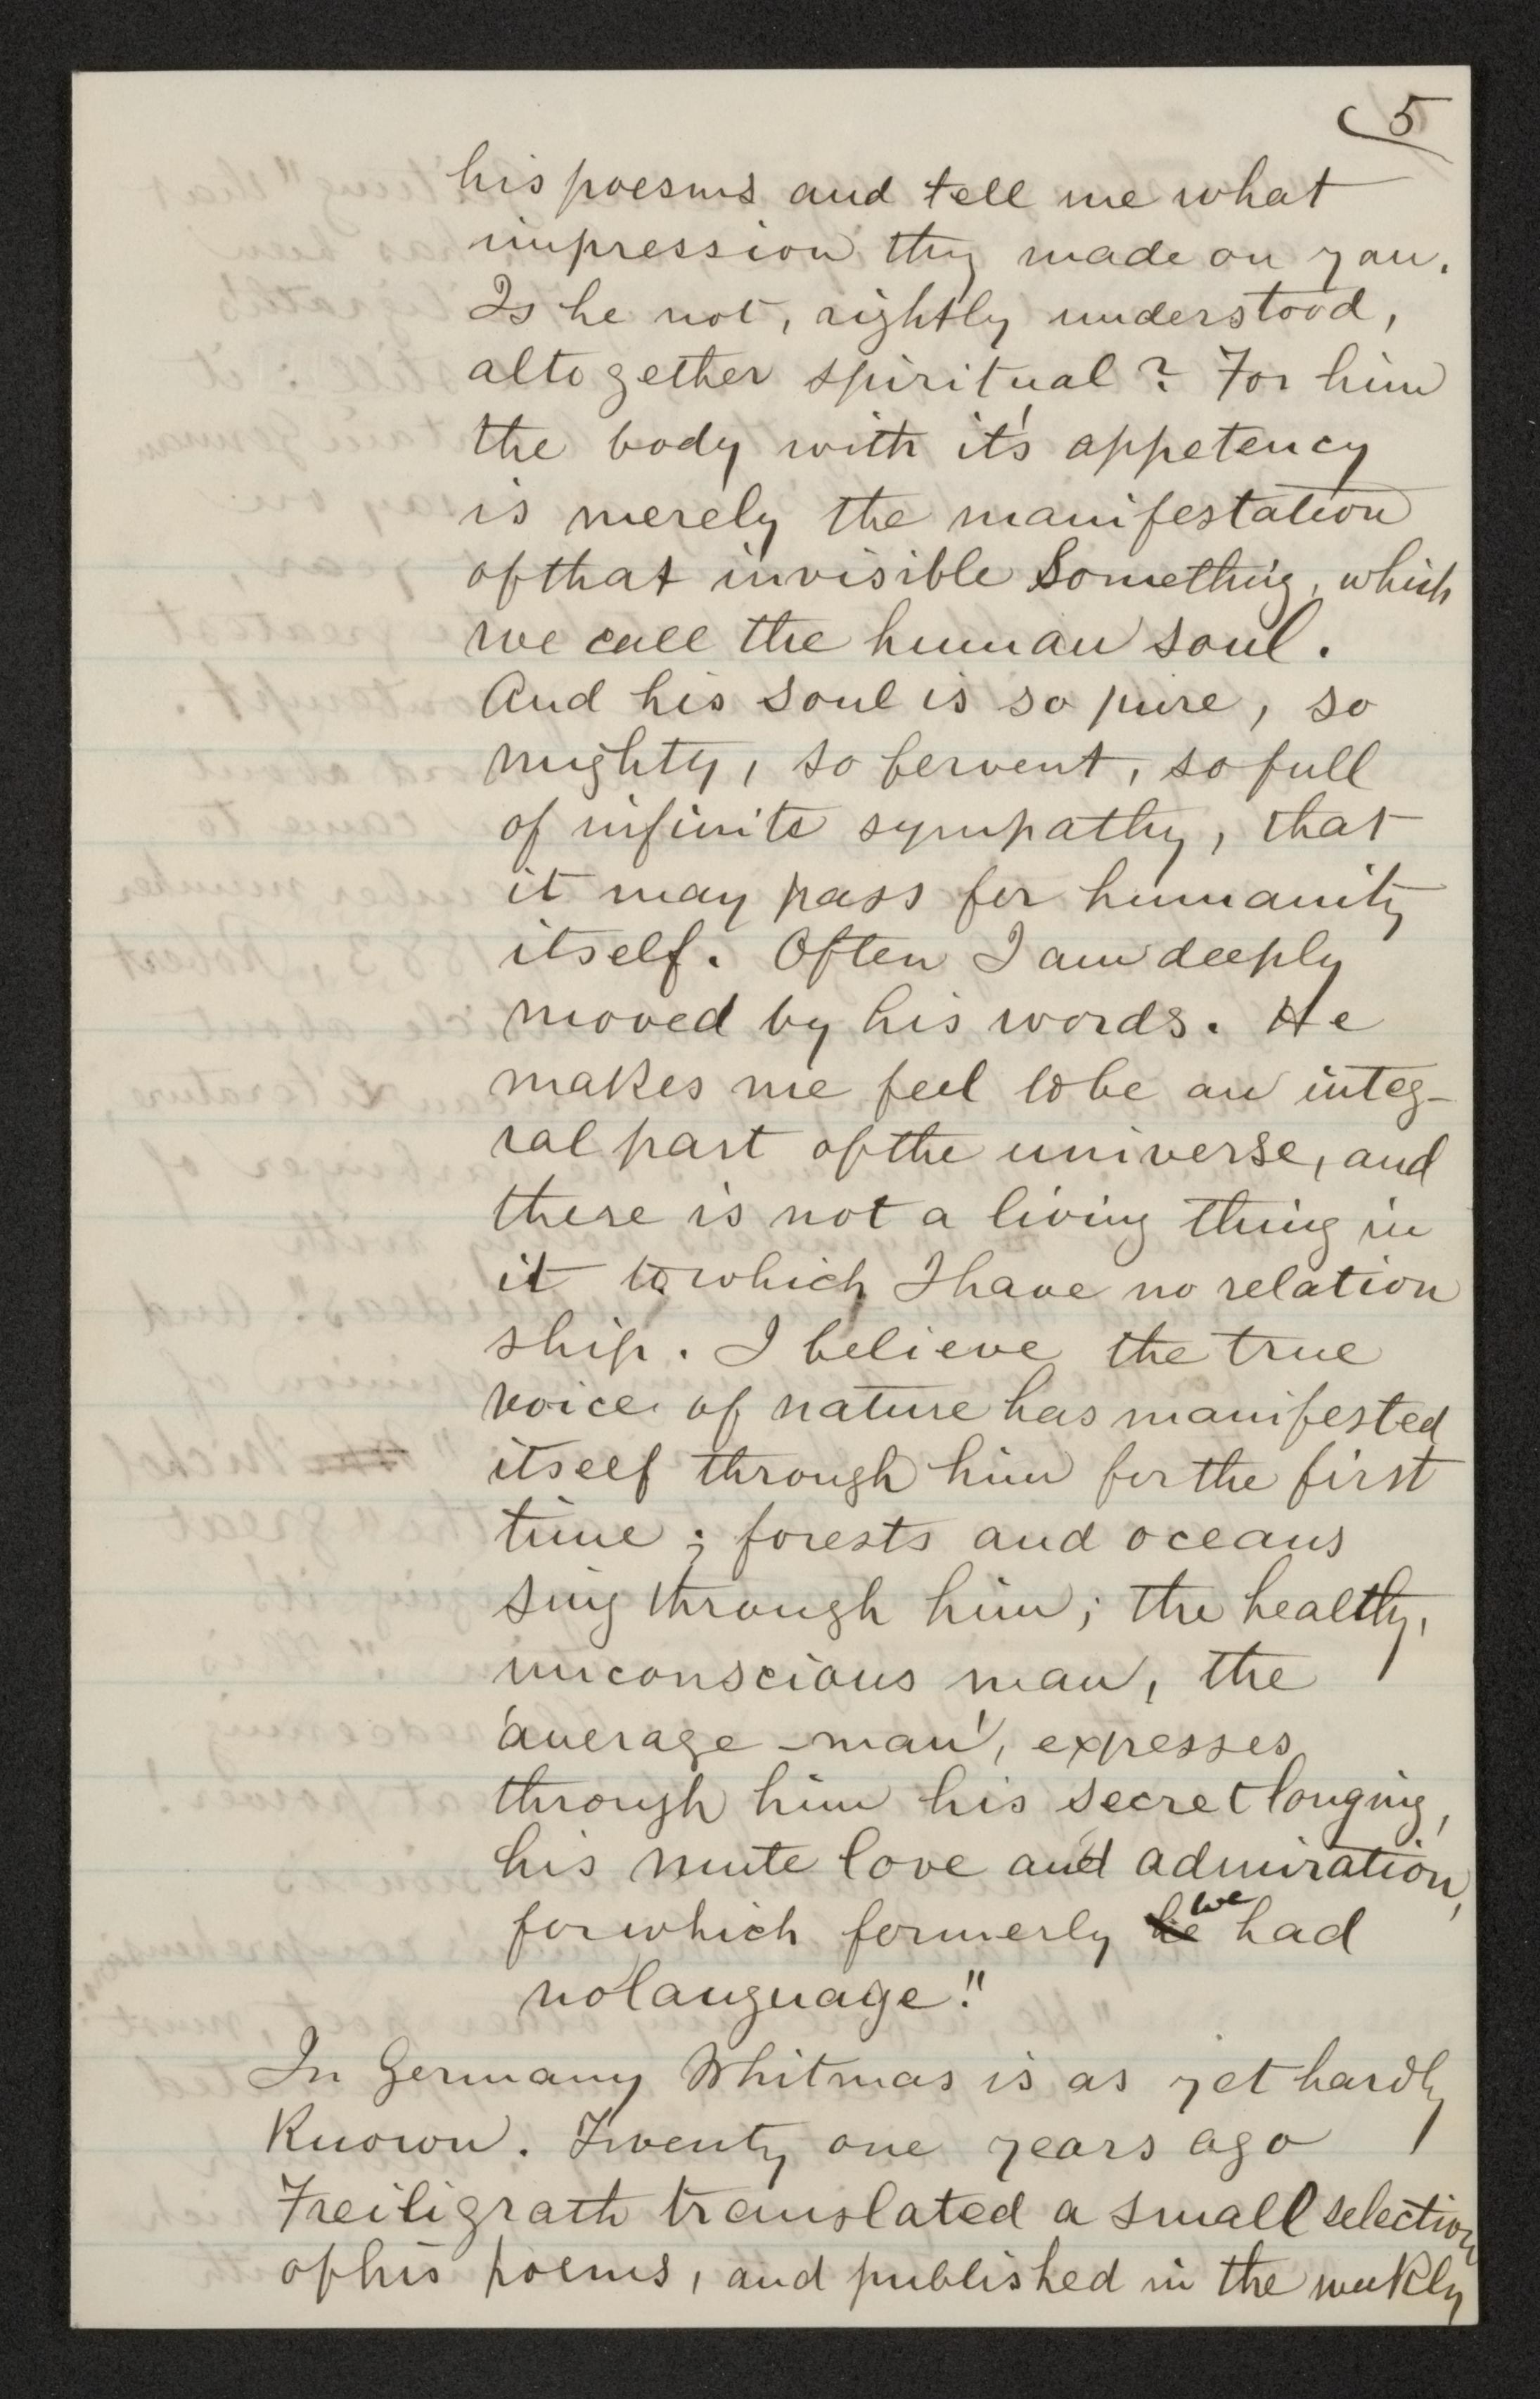 5
his poesms and tell me what
impression they made on you.
Is he not, rightly understood,
altogether spiritual? For him
the body with it's appetency
is merely the manifestation
of that invisible Something, which
we call the human soul.
And his soul is so pure, so
mighty, so fervent, so full
of infinite sympathy, that
it may pass for humanity
itself. Often I am deeply
moved by his words. He
makes me feel to be an integ-
ral part of the universe, and
there is not a living thing in
it to which I have no relation
ship. I believe the true
voice of nature has manifested
itself through him for the first
time; forests and oceans
sing through him; the healthy,
unconscious man, the
'average-man', expresses
through him his secret longing,
his mute love and admiration,
for which formerly he we had
no language."
In Germany Whitmas is as yet hardly
known. Twenty one years ago
Freiligrath translated a small selection
of his poems, and published in the weekly